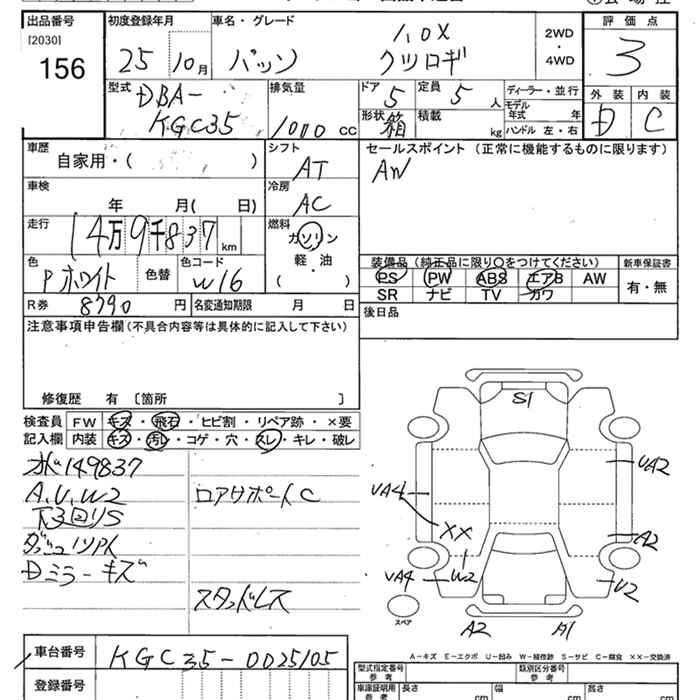 出品番号 初度登録年月 車名・グレード 評価点
[2030]
156
25 10月 パッソ ハロX クツロギ 2WD・4WD 3
型式 DBA-KGC35 排気量 1000 cc
ドア 5 定員 5 人 ディーラー・並行
形状 箱 積載 kg モデル年式 年
ハンドル 左・右
外装 内装
D C
車歴 自家用・( ) シフト AT
セールスポイント(正常に機能するものに限ります)
AW
車検 年 月( 日) 冷房 AC
走行 14万9千837 km
燃料 ガソリン 軽・油 ( )
色 Pホワイト 色替 色コード W16
R券 8790 円 名変通知期限 月 日
装備品(純正品に限り○をつけてください) 新車保証書
PS PW ABS エアB AW 有・無
SR ナビ TV カワ
後日品
注意事項申告欄(不具合内容等は具体的に記入して下さい)
修復歴 有 〔箇所 〕
検査員 FW キズ・飛石・ヒビ割・リペア跡・×要
記入欄 内装 キズ・汚レ・コゲ・穴・スレ・キレ・破レ
149837
A.U.W2 ロアサポートC
下回りS
Dミラーキズ
スタッドレス
S1
UA2
UA4
XX
A2
UA4
W2
U2
スペア
A2 A1
A-キズ E-エクボ U-凹み W-補修跡 S-サビ C-腐食 ××-交換済
車台番号 KGC35-0025105
登録番号
型式指定番号 参考 類別区分番号 参考
車庫証明用 参考 長さ cm 幅 cm 高さ cm